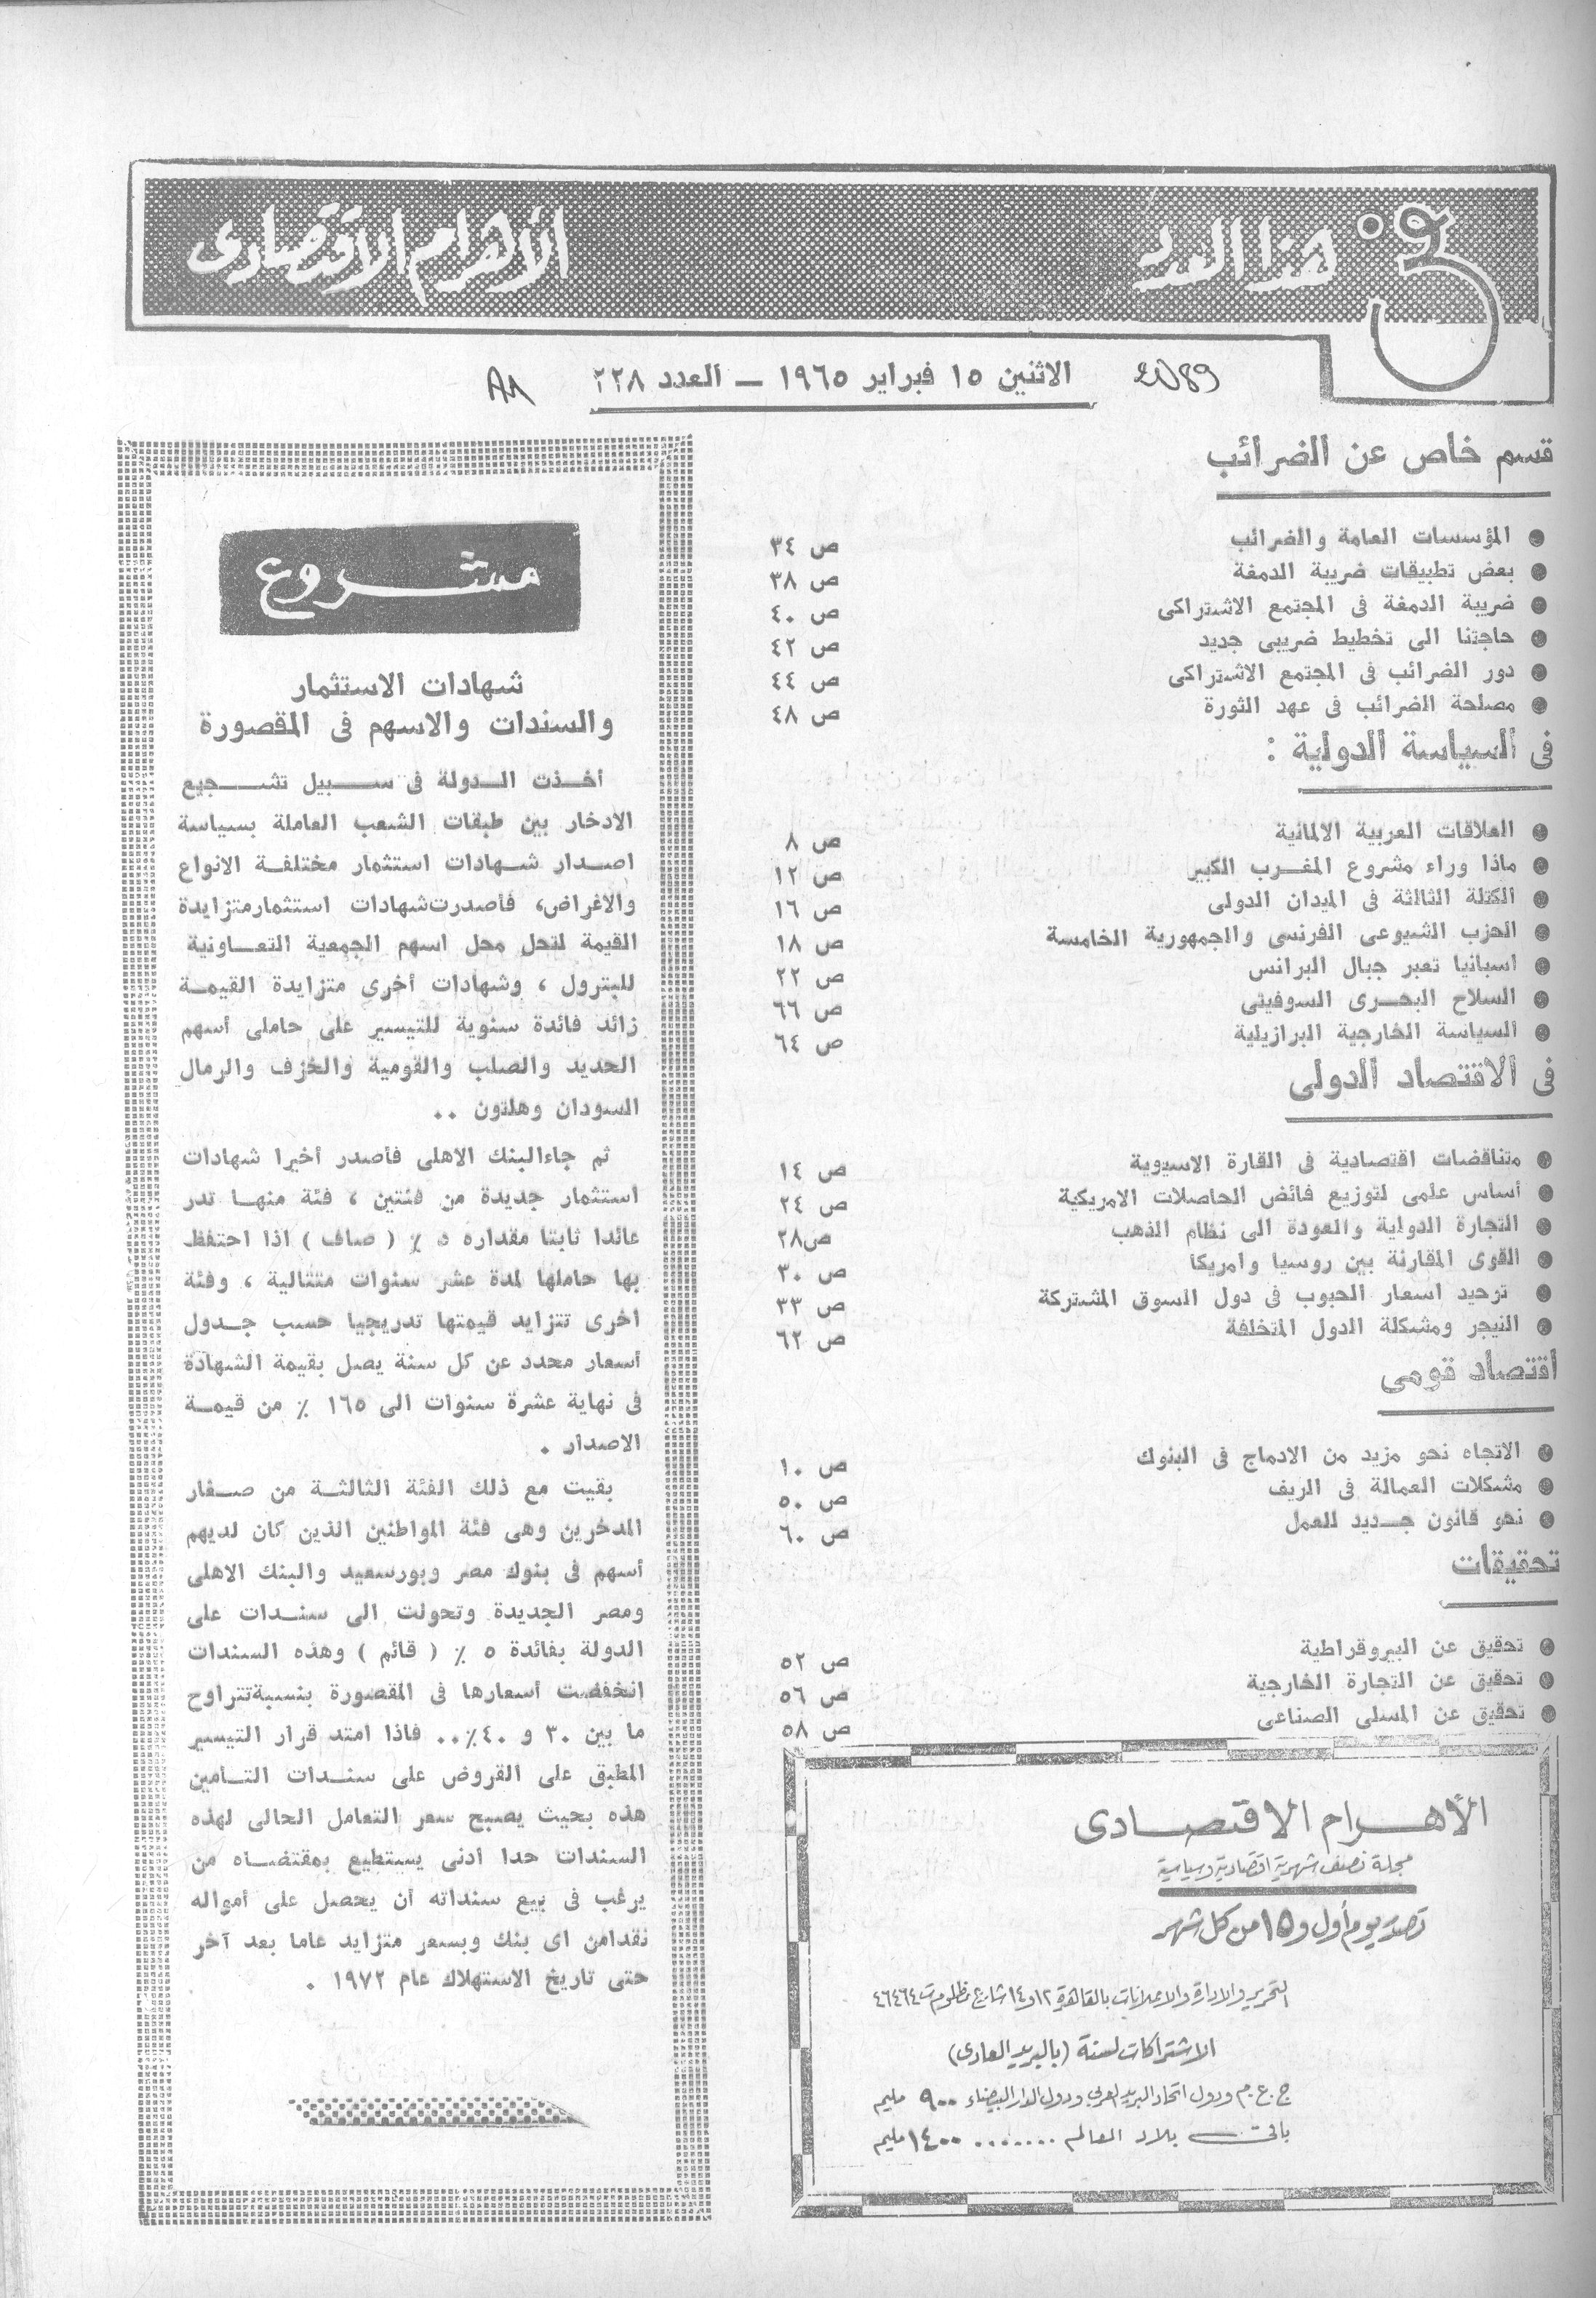 فى هذا العدد
الأهرام الاقتصادى
الاثنين ١٥ فبراير ١٩٦٥ – العدد ٢٢٨
قسم خاص عن الضرائب
● المؤسسات العامة والضرائب ص ٣٤
● بعض تطبيقات ضريبة الدمغة ص ٣٨
● ضريبة الدمغة فى المجتمع الاشتراكى ص ٤٠
● حاجتنا الى تخطيط ضريبى جديد ص ٤٢
● دور الضرائب فى المجتمع الاشتراكى ص ٤٤
● مصلحة الضرائب فى عهد الثورة ص ٤٨
فى السياسة الدولية :
● العلاقات العربية الالمانية ص ٨
● ماذا وراء مشروع المغرب الكبير ص ١٢
● الكتلة الثالثة فى الميدان الدولى ص ١٦
● الحزب الشيوعى الفرنسى والجمهورية الخامسة ص ١٨
● اسبانيا تعبر جبال البرانس ص ٢٢
● السلاح البحرى السوفيتى ص ٦٦
● السياسة الخارجية البرازيلية ص ٦٤
فى الاقتصاد الدولى
● متناقضات اقتصادية فى القارة الاسيوية ص ١٤
● أساس علمى لتوزيع فائض الحاصلات الامريكية ص ٢٤
● التجارة الدولية والعودة الى نظام الذهب ص٢٨
● القوى المقارنة بين روسيا وامريكا ص ٣٠
● توحيد اسعار الحبوب فى دول السوق المشتركة ص ٣٣
● النيجر ومشكلة الدول المتخلفة ص ٦٢
اقتصاد قومى
● الاتجاه نحو مزيد من الادماج فى البنوك ص ١٠
● مشكلات العمالة فى الريف ص ٥٠
● نحو قانون جديد للعمل ص ٦٠
تحقيقات
● تحقيق عن البيروقراطية ص ٥٢
● تحقيق عن التجارة الخارجية ص ٥٦
● تحقيق عن المسلى الصناعى ص ٥٨
الأهرام الاقتصادى
مجلة نصف شهرية اقتصادية وسياسية
تصدر يوم أول و ١٥ من كل شهر
التحرير والادارة والاعلانات بالقاهرة ١٢ و ١٤ شارع مظلوم ت ٤٦٤٦٤
الاشتراكات لسنة (بالبريد العادى)
ج.ع.م ودول اتحاد البريد العربى ودول الدار البيضاء ٩٠٠ مليم
باقى بلاد العالم ........ ١٤٠٠ مليم
مشروع
شهادات الاستثمار
والسندات والاسهم فى المقصورة
أخذت الدولة فى سبيل تشجيع
الادخار بين طبقات الشعب العاملة بسياسة
اصدار شهادات استثمار مختلفة الانواع
والاغراض، فأصدرت شهادات استثمار متزايدة
القيمة لتحل محل اسهم الجمعية التعاونية
للبترول ، وشهادات أخرى متزايدة القيمة
زائد فائدة سنوية للتيسير على حاملى أسهم
الحديد والصلب والقومية والخزف والرمال
السودان وهلتون ..
ثم جاء البنك الاهلى فأصدر أخيرا شهادات
استثمار جديدة من فئتين ، فئة منها تدر
عائدا ثابتا مقداره ٥ ٪ ( صاف ) اذا احتفظ
بها حاملها لمدة عشر سنوات متتالية ، وفئة
اخرى تتزايد قيمتها تدريجيا حسب جدول
أسعار محدد عن كل سنة يصل بقيمة الشهادة
فى نهاية عشرة سنوات الى ١٦٥ ٪ من قيمة
الاصدار .
بقيت مع ذلك الفئة الثالثة من صغار
المدخرين وهى فئة المواطنين الذين كان لديهم
أسهم فى بنوك مصر وبورسعيد والبنك الاهلى
ومصر الجديدة وتحولت الى سندات على
الدولة بفائدة ٥ ٪ ( قائم ) وهذه السندات
انخفضت أسعارها فى المقصورة بنسبة تتراوح
ما بين ٣٠ و ٤٠٪.. فاذا امتد قرار التيسير
المطبق على القروض على سندات التأمين
هذه بحيث يصبح سعر التعامل الحالى لهذه
السندات حدا أدنى يستطيع بمقتضاه من
يرغب فى بيع سنداته أن يحصل على أمواله
نقدا من اى بنك وبسعر متزايد عاما بعد آخر
حتى تاريخ الاستهلاك عام ١٩٧٢ .